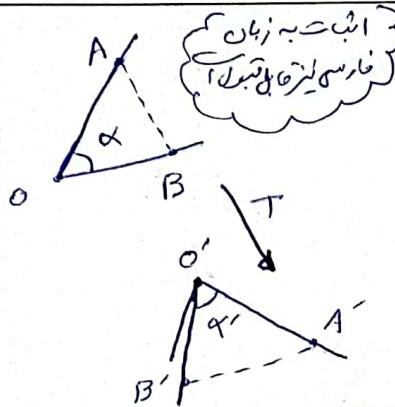 اثبات به زبان
فارسی نیز قابل قبول است
A
α
O
B
T
O'
α'
A'
B'